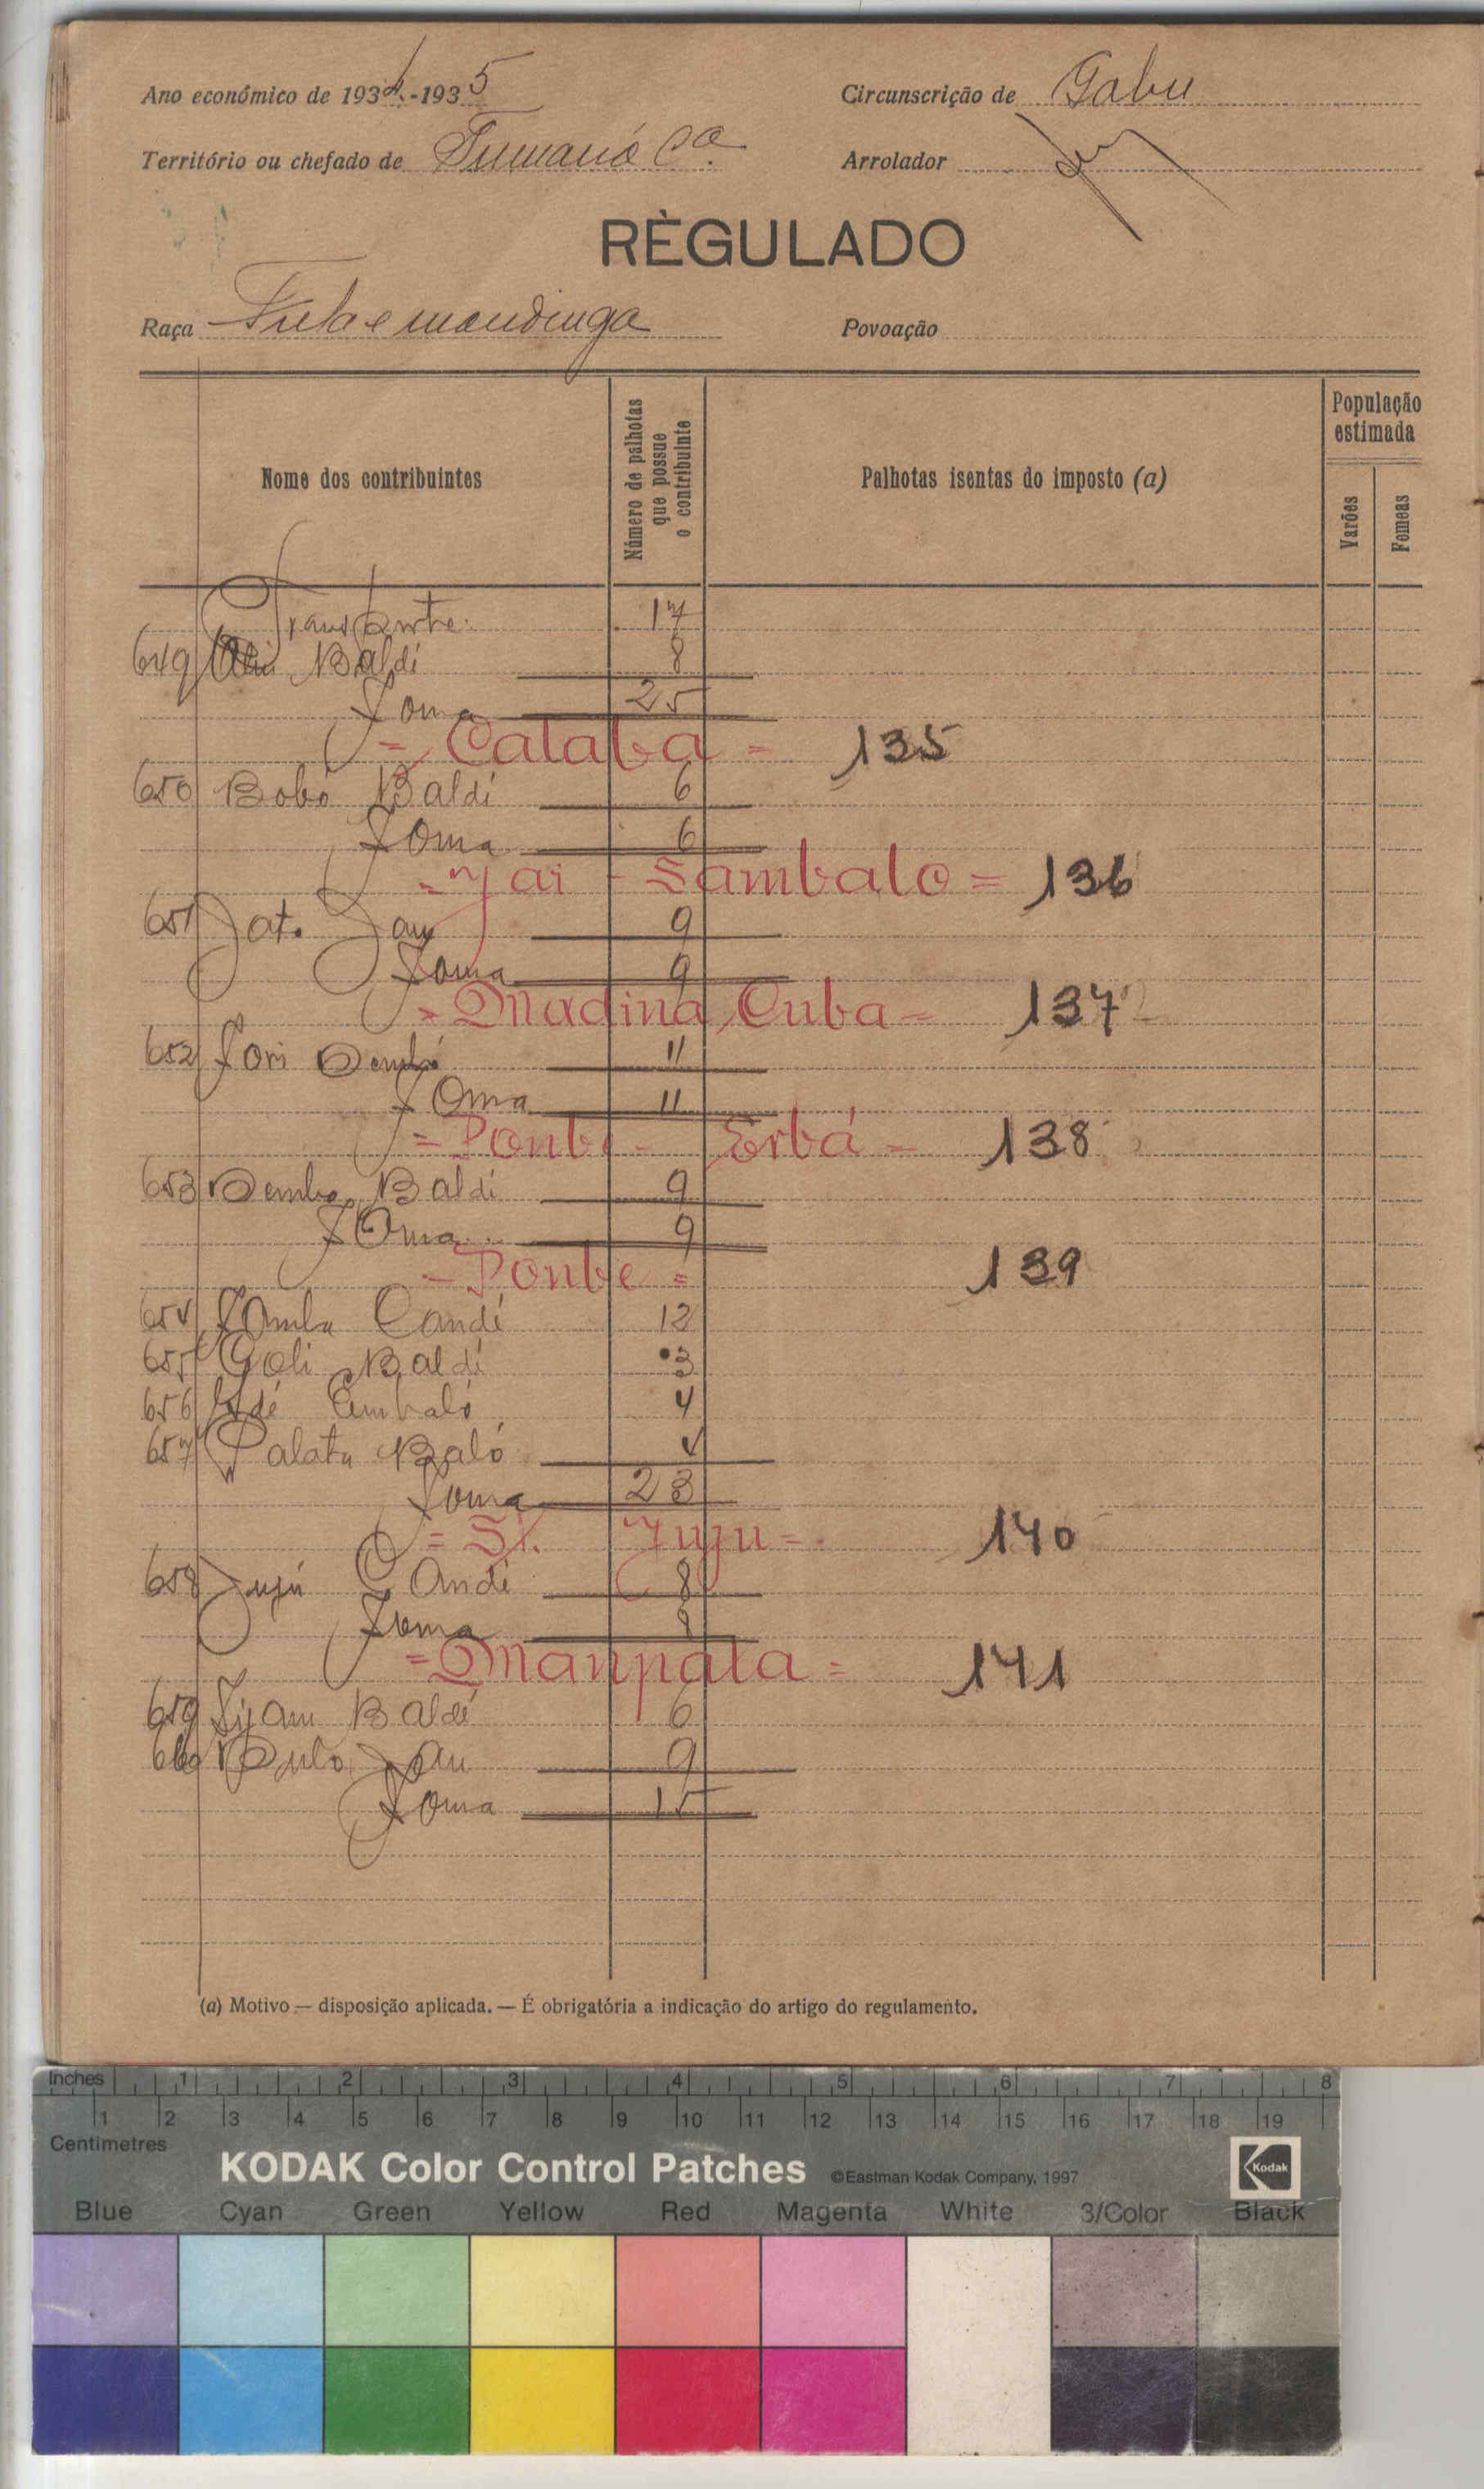 Ano económico de 1934-1935
Circunscrição de Gabu
Território ou chefado de Tumaná Cª.
Arrolador
RÈGULADO
Raça Fula e mandinga
Povoação
Nome dos contribuintes
Número de palhotas que possue o contribuinte
Palhotas isentas do imposto (a)
População estimada
Varões
Femeas
Transporte. 17
649 Baldi 8
Soma 25
= Cataba = 135
650 Bobo Baldi 6
Soma 6
= Jai - Sambalo = 136
651 Jato Jau 9
Soma 9
= Madina Cuba = 137
652 Sori Dembó 11
Soma 11
= Ponbe - Erbá = 138
653 Dembo Baldi 9
Soma 9
- Ponbe = 139
654 Samba Candi 12
655 Goli Baldi 3
656 Embaló 4
657 Palata Baló 4
Soma 23
= Sr. Juju = 140
658 Juju Candi 8
Soma 8
= Manpata = 141
659 Sijam Baldé 6
660 Dulo Jau 9
Soma 15
(a) Motivo — disposição aplicada. — É obrigatória a indicação do artigo do regulamento.
Inches 1 2 3 4 5 6 7 8
1 2 3 4 5 6 7 8 9 10 11 12 13 14 15 16 17 18 19
Centimetres
KODAK Color Control Patches ©Eastman Kodak Company, 1997 Kodak
Blue Cyan Green Yellow Red Magenta White 3/Color Black